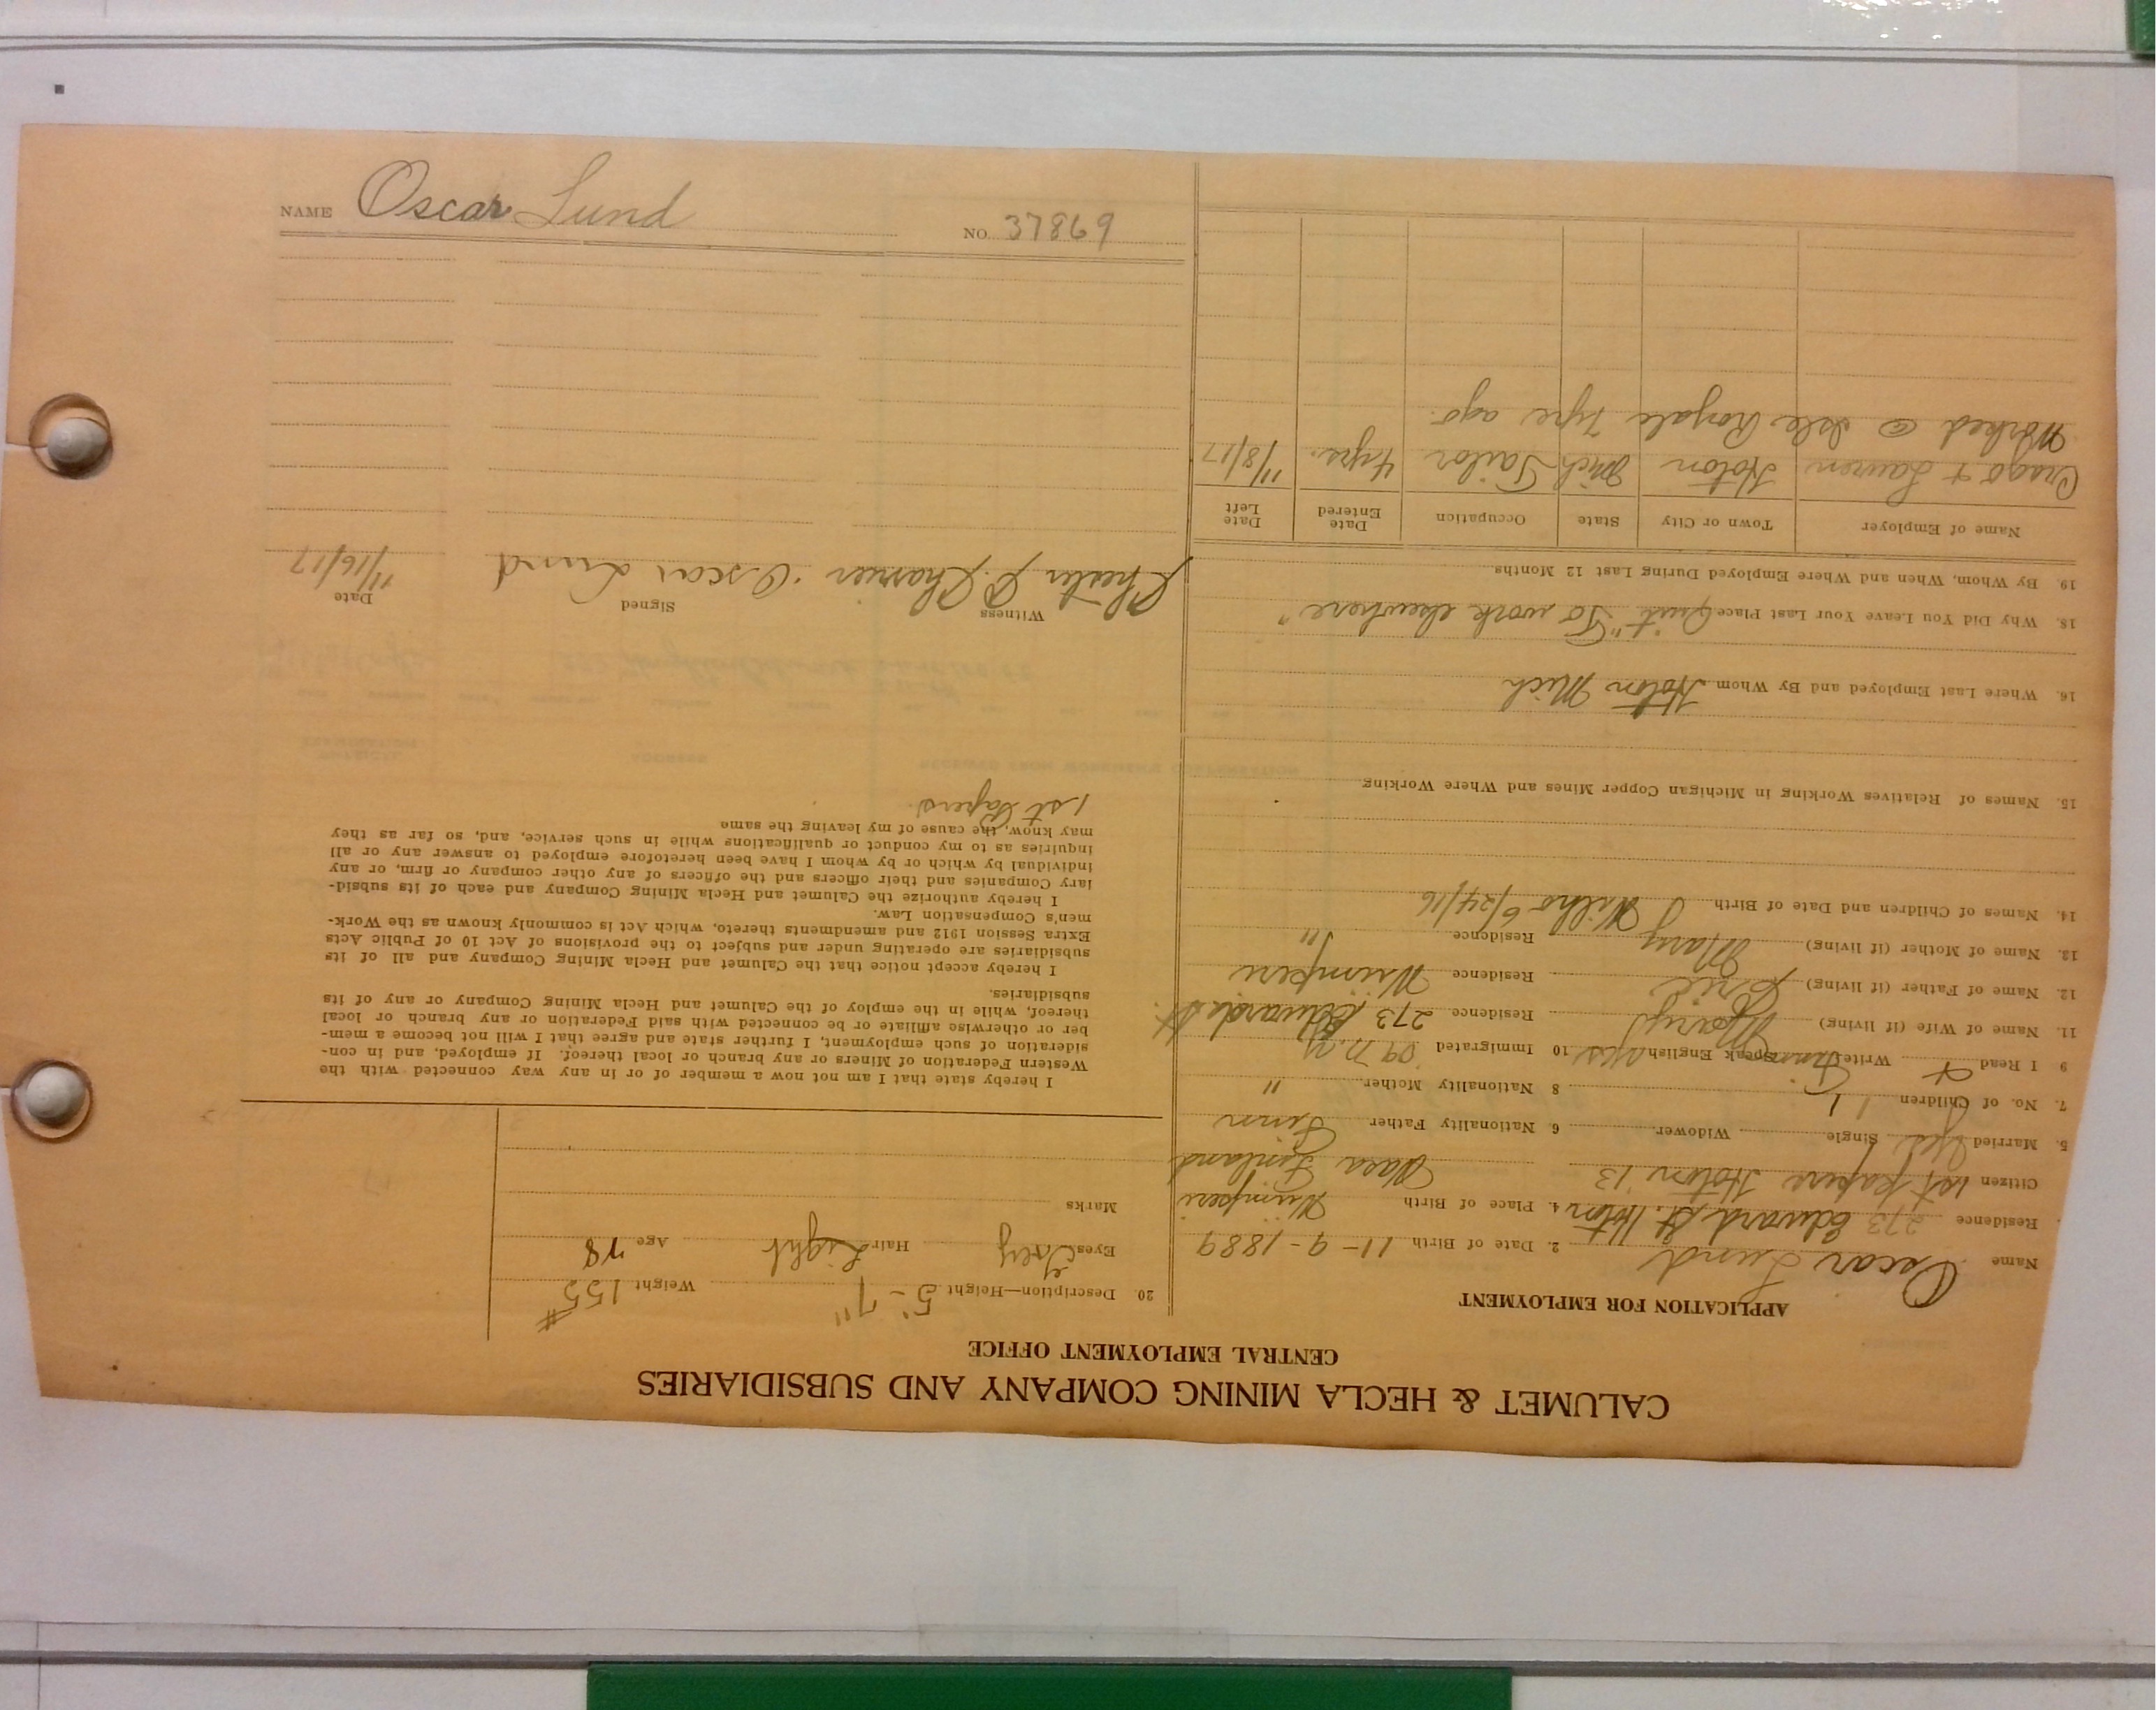 CALUMET & HECLA MINING COMPANY AND SUBSIDIARIES
CENTRAL EMPLOYMENT OFFICE
APPLICATION FOR EMPLOYMENT
Name Oscar Lund 2. Date of Birth 11-9-1889
Residence 273 Edward St. Hoton 4. Place of Birth
Citizen 1st papers Hoton '13 Wasa Finland
5. Married Yes Single Widower 6. Nationality Father Finn
7. No. of Children 1 8 Nationality Mother "
9 I Read Write Finn Speak English yes 10 Immigrated '09 N.Y
11. Name of Wife (if living) Mary Residence 273 Edward St.
12. Name of Father (if living) Eric Residence
13. Name of Mother (if living) Mary Residence "
14. Names of Children and Date of Birth Wilho 6/24/16
15. Names of Relatives Working in Michigan Copper Mines and Where Working
16. Where Last Employed and By Whom Hoton Mich
18. Why Did You Leave Your Last Place Quit "To work elsewhere"
19. By Whom, When and Where Employed During Last 12 Months
Name of Employer Town or City State Occupation Date Entered Date Left
Crago + Hoton Mich Tailor 4 yrs. 11/8/17
Worked @ Isle Royale 7 yrs ago.
20. Description—Height 5'-7" Weight 155#
Eyes Grey Hair Light Age 28
Marks
I hereby state that I am not now a member of or in any way connected with the
Western Federation of Miners or any branch or local thereof. If employed, and in con-
sideration of such employment, I further state and agree that I will not become a mem-
ber or otherwise affiliate or be connected with said Federation or any branch or local
thereof, while in the employ of the Calumet and Hecla Mining Company or any of its
subsidiaries.
I hereby accept notice that the Calumet and Hecla Mining Company and all of its
subsidiaries are operating under and subject to the provisions of Act 10 of Public Acts
Extra Session 1912 and amendments thereto, which Act is commonly known as the Work-
men's Compensation Law.
I hereby authorize the Calumet and Hecla Mining Company and each of its subsid-
iary Companies and their officers and the officers of any other company or firm, or any
individual by which or by whom I have been heretofore employed to answer any or all
inquiries as to my conduct or qualifications while in such service, and, so far as they
may know, the cause of my leaving the same
1st Papers.
Witness Signed Date
Oscar Lund 11/16/17
NAME Oscar Lund NO. 37869